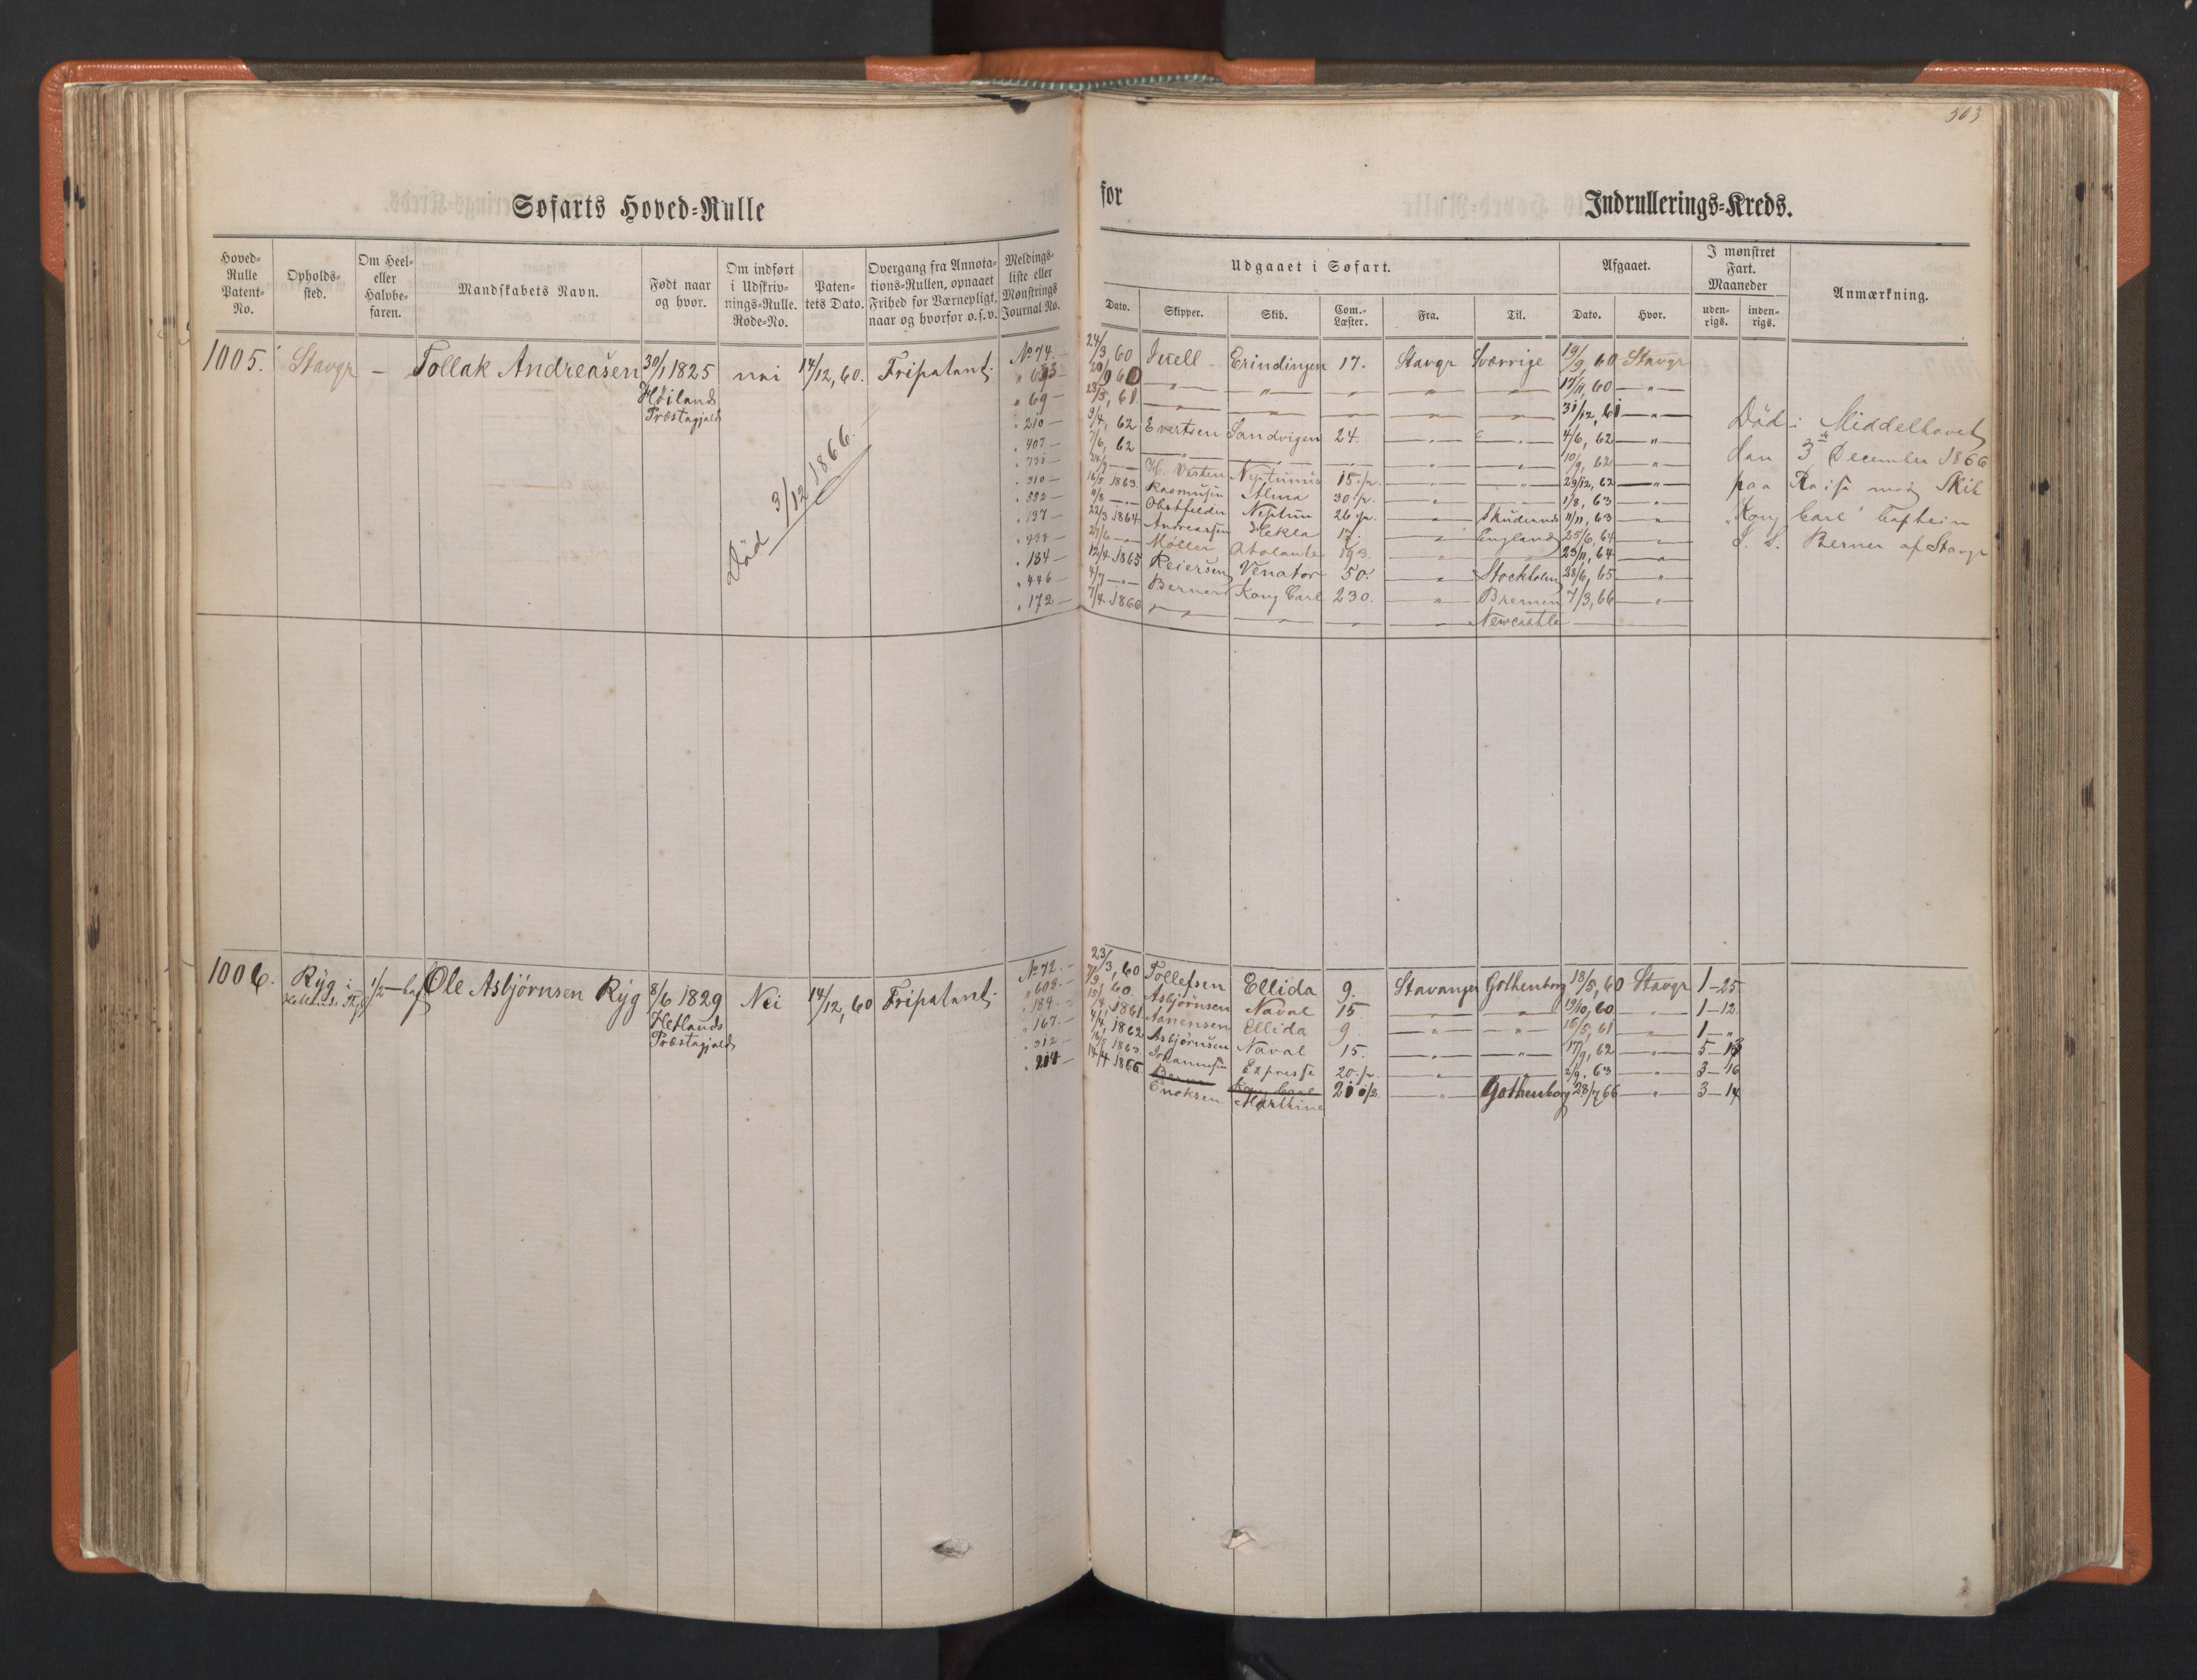 503
Søfarts Hoved-Rulle
for
Indrullerings-Kreds.
Hoved-Rulle Patent-No.
Opholds-sted.
Om Heel- eller Halvbe-faren.
Mandskabets Navn.
Født naar og hvor.
Om indført i Udskriv-nings-Rulle. Rode-No.
Paten-tets Dato.
Overgang fra Annota-tions-Rullen, opnaaet Frihed for Værnepligt, naar og hvorfor o.s.v.
Meldings-liste eller Mønstrings Journal No.
Udgaaet i Søfart.
Afgaaet.
I mønstret Fart. Maaneder
Anmærkning.
Dato.
Skipper.
Skib.
Com.-Læster.
Fra.
Til.
Dato.
Hvor.
uden-rigs.
inden-rigs.
1005. Stavgr — Tollak Andreasen 30/1 1825 nei 14/12, 60. Fripatent.
Høilands
Præstagjald
Død 3/12 1866.
No 74. 24/3 60 Juell Erindingen 17. Stavgr Sværrige 19/9, 60 Stavgr
" 693 20/9 60 " " " " " 17/11, 60 "
" 69 23/5, 61 " " " " " 31/12, 61 "
" 210 9/4, 62 Evertsen Sandvigen 24. " " 4/6, 62 "
" 407 7/6, 62 " " " " " 10/9, 62 "
" 731 24/9 — H. Vesten Neptunus 15 " " 23/12, 62 "
" 310 16/5 1863. Rasmusen Alma 30 " " 1/8, 63 "
" 552 11/8 — Obstfelder Neptun 26 " Skudesnes 11/11, 63 "
" 137 22/3 1864 Andreassen Hekla 17. " England 25/6, 64 "
" 434 27/6 — Møller Atalante 193. " 23/11, 64 "
" 184 12/4 1865 Reiersen Venator 50. " Stockholm 28/6, 65 "
" 446 4/7 — Berner Kong Carl 230. " Bremen 7/3, 66 "
" 172 7/4 1866 " " " " Newcastle —
Død i Middelhavet
den 3de December 1866
paa Reise med Skib
"Kong Carl" Captein
S. S. Berner af Stavgr
1006. Ryg i 1/2 — bef Ole Asbjørnsen Ryg 8/6 1829 Nei 14/12, 60 Fripatent.
Hetlands
Præstagjald
No 72. 23/3, 60 Tollefsen Ellida 9. Stavanger Gothenborg 18/5, 60 Stavgr 1—25
" 608. 7/9, 60. Asbjørnsen Naval 15 " " 19/10, 60 " 1—12.
" 184. 15/4 1861 Aanensen Ellida 9 " " 16/5, 61 " 1—"
" 167. 4/4, 1862 Asbjørnsen Naval 15. " " 17/9, 62 " 5—13
" 312 16/5 1863 Johannesen Expresse 20 " " 2/9, 63 " 3—16
" 214 14/4 1866 Berner Kong Carl
Enoksen Marthine " Gothenborg 28/7 66 " 3—14